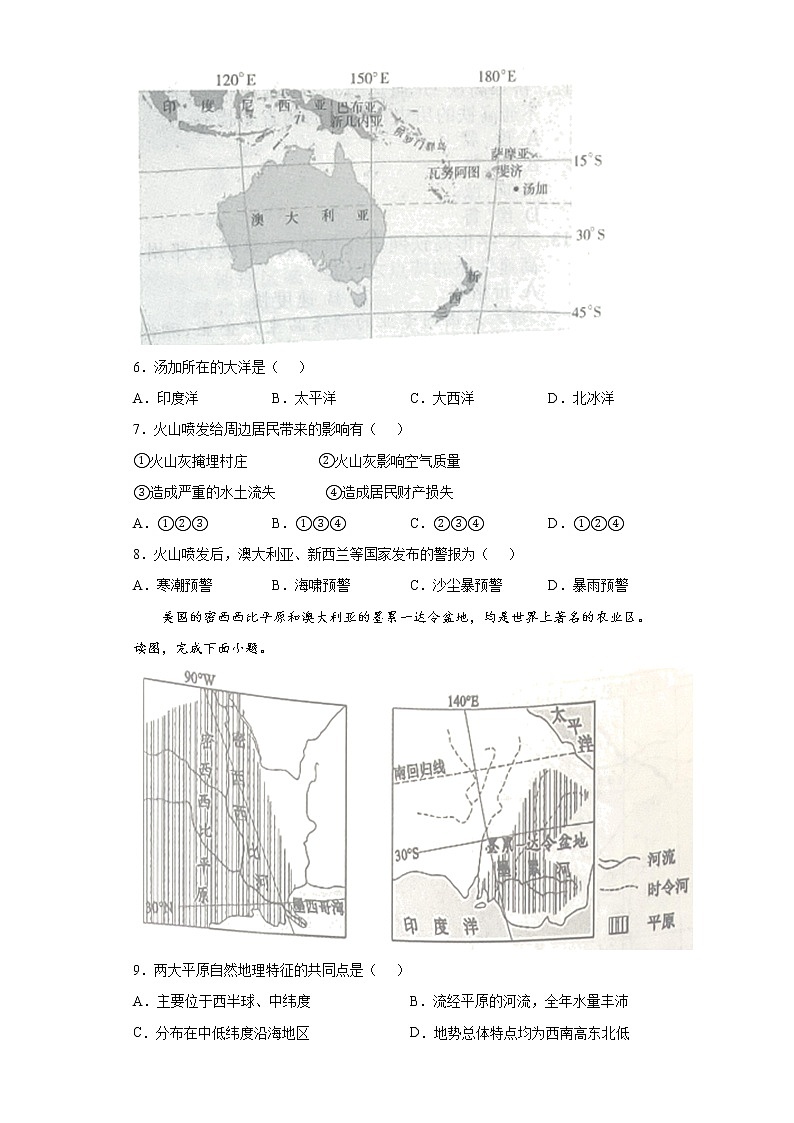 120°E 150°E 180°E
印 度 尼 西 亚
巴布亚
新几内亚
所罗门群岛
萨摩亚
15°S
瓦努阿图 斐济
汤加
澳 大 利 亚
30°S
新
西
45°S
6．汤加所在的大洋是（ ）
A．印度洋 B．太平洋 C．大西洋 D．北冰洋
7．火山喷发给周边居民带来的影响有（ ）
①火山灰掩埋村庄 ②火山灰影响空气质量
③造成严重的水土流失 ④造成居民财产损失
A．①②③ B．①③④ C．②③④ D．①②④
8．火山喷发后，澳大利亚、新西兰等国家发布的警报为（ ）
A．寒潮预警 B．海啸预警 C．沙尘暴预警 D．暴雨预警
美国的密西西比平原和澳大利亚的墨累—达令盆地，均是世界上著名的农业区。
读图，完成下面小题。
90°W
密西西比平原
密西西比河
30°N
墨西哥湾
140°E
太平洋
南回归线
30°S
墨累—达令盆地
墨 累 河
印 度 洋
河流
时令河
平原
9．两大平原自然地理特征的共同点是（ ）
A．主要位于西半球、中纬度 B．流经平原的河流，全年水量丰沛
C．分布在中低纬度沿海地区 D．地势总体特点均为西南高东北低